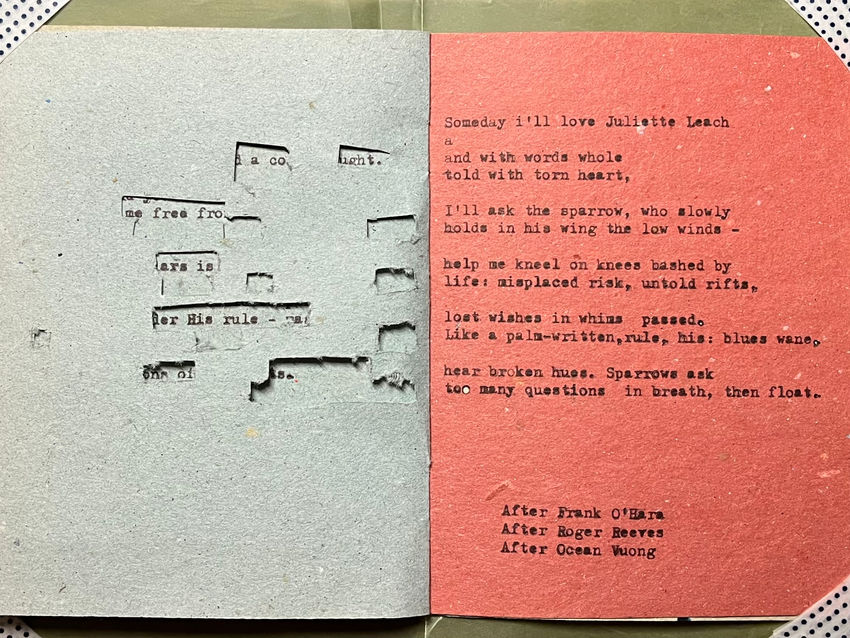 d a co ught.
me free fro
ars is
der His rule -
one of s.
Someday i'll love Juliette Leach
a
and with words whole
told with torn heart,
I'll ask the sparrow, who slowly
holds in his wing the low winds -
help me kneel on knees bashed by
life: misplaced risk, untold rifts,
lost wishes in whims passed.
Like a palm-written,rule, his: blues wane,
hear broken hues. Sparrows ask
too many questions in breath, then float.
After Frank O'Hara
After Roger Reeves
After Ocean Vuong